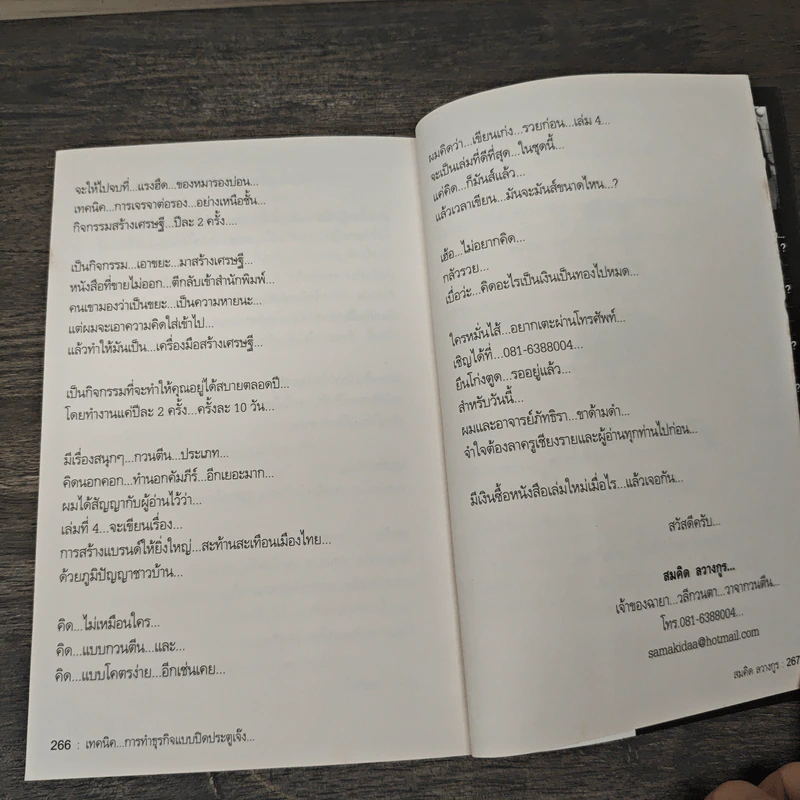 จะให้ไปจบที่...แรงฮึด...ของหมารองบ่อน...
เทคนิค...การเจรจาต่อรอง...อย่างเหนือชั้น...
กิจกรรมสร้างเศรษฐี...ปีละ 2 ครั้ง....
เป็นกิจกรรม...เอาขยะ...มาสร้างเศรษฐี...
หนังสือที่ขายไม่ออก...ตีกลับเข้าสำนักพิมพ์...
คนเขามองว่าเป็นขยะ...เป็นความหายนะ...
แต่ผมจะเอาความคิดใส่เข้าไป...
แล้วทำให้มันเป็น...เครื่องมือสร้างเศรษฐี...
เป็นกิจกรรมที่จะทำให้คุณอยู่ได้สบายตลอดปี...
โดยทำงานแค่ปีละ 2 ครั้ง...ครั้งละ 10 วัน...
มีเรื่องสนุกๆ...กวนตีน...ประเภท...
คิดนอกคอก...ทำนอกคัมภีร์...อีกเยอะมาก...
ผมได้สัญญากับผู้อ่านไว้ว่า...
เล่มที่ 4...จะเขียนเรื่อง...
การสร้างแบรนด์ให้ยิ่งใหญ่...สะท้านสะเทือนเมืองไทย...
ด้วยภูมิปัญญาชาวบ้าน...
คิด...ไม่เหมือนใคร...
คิด...แบบกวนตีน...และ...
คิด...แบบโคตรง่าย...อีกเช่นเคย...
266 : เทคนิค...การทำธุรกิจแบบปิดประตูเจ๊ง...
ผมคิดว่า...เขียนเก่ง...รวยก่อน...เล่ม 4...
จะเป็นเล่มที่ดีที่สุด...ในชุดนี้...
แค่คิด...ก็มันส์แล้ว...
แล้วเวลาเขียน...มันจะมันส์ขนาดไหน...?
เฮ้อ...ไม่อยากคิด...
กลัวรวย...
เบื่อว่ะ...คิดอะไรเป็นเงินเป็นทองไปหมด...
ใครหมั่นไส้...อยากเตะผ่านโทรศัพท์...
เชิญได้ที่...081-6388004...
ยืนโก่งตูด...รออยู่แล้ว...
สำหรับวันนี้...
ผมและอาจารย์ภัทธิรา...ขาด้ามดำ...
จำใจต้องลาครูเชียงรายและผู้อ่านทุกท่านไปก่อน...
มีเงินซื้อหนังสือเล่มใหม่เมื่อไร...แล้วเจอกัน...
สวัสดีครับ...
สมคิด ลวางกูร...
เจ้าของฉายา...วลีกวนตา...วาจากวนตีน...
โทร.081-6388004...
samakidaa@hotmail.com
สมคิด ลวางกูร : 267
?
?
?